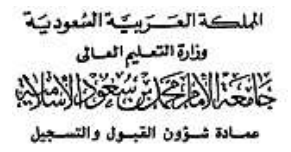 المملكة العـربيـة السعوديـة
وزارة التعـليم العـالى
جامعة الإمام محمد بن سعود الإسلامية
عمـادة شـؤون القبـول والتسـجيل